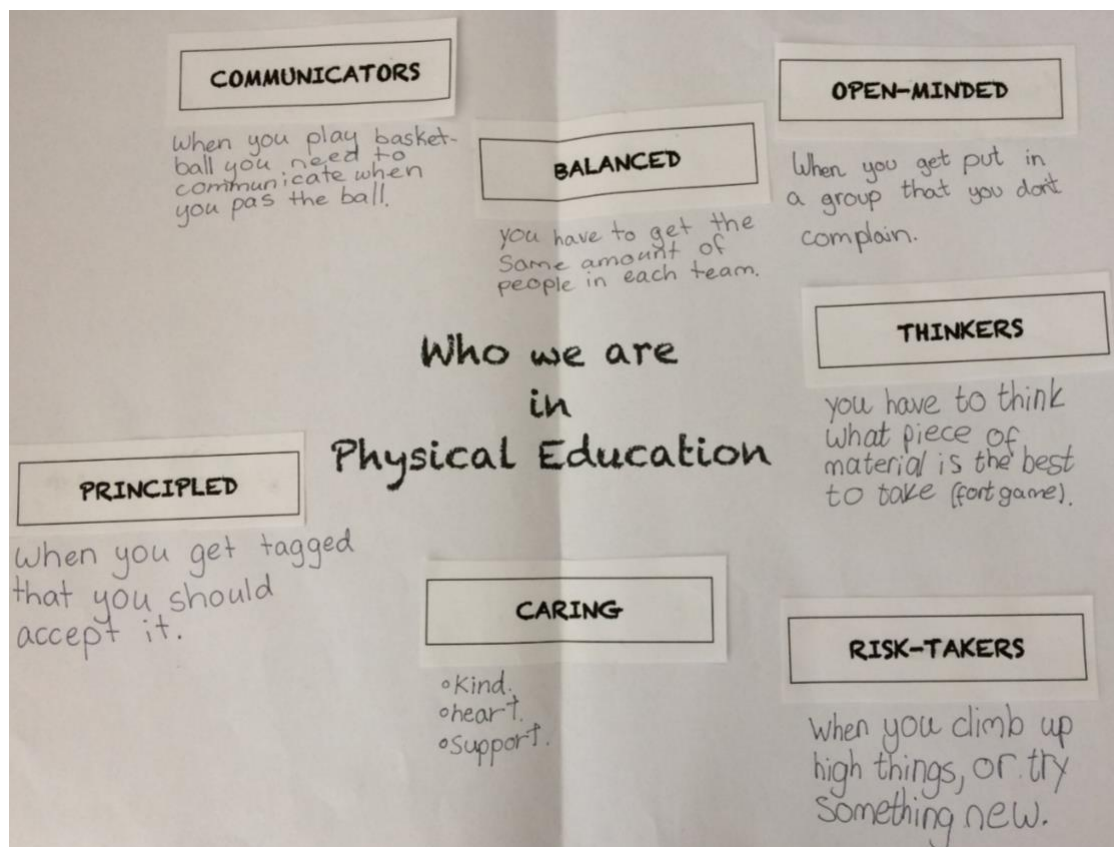 COMMUNICATORS
When you play basket-
ball you need to
communicate when
you pas the ball.
BALANCED
you have to get the
same amount of
people in each team.
OPEN-MINDED
When you get put in
a group that you don't
complain.
Who we are
in
Physical Education
THINKERS
you have to think
what piece of
material is the best
to take (fort game).
PRINCIPLED
When you get tagged
that you should
accept it.
CARING
∘Kind.
∘heart.
∘Support.
RISK-TAKERS
When you climb up
high things, or try
something new.